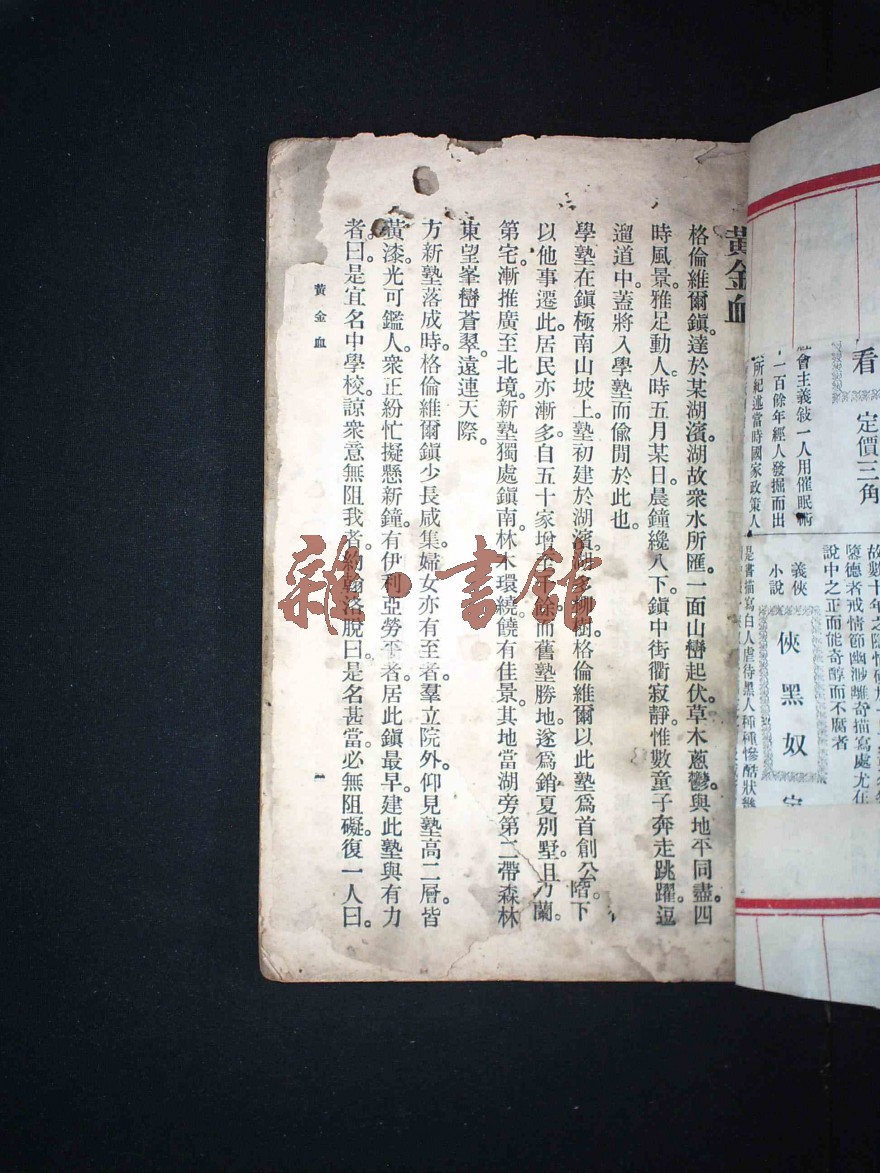 黃金血
格倫維爾鎮。達於某湖濱。湖故衆水所匯。一面山巒起伏。草木蔥鬱。與地平同盡。四
時風景。雅足動人。時五月某日。晨鐘纔八下。鎮中街衢寂靜。惟數童子奔走跳躍。逗
遛道中。蓋將入學塾而偸閒於此也。
學塾在鎮極南山坡上。塾初建於湖濱。湖多柳樹。格倫維爾以此塾爲首創公。
以他事遷此。居民亦漸多。自五十家增至千餘。而舊塾勝地。遂爲銷夏別墅。
第宅。漸推廣至北境。新塾獨處鎮南。林木環繞。饒有佳景。其地當湖旁第二帶森林
東望峯巒蒼翠。遠連天際。
方新塾落成時。格倫維爾鎮少長咸集。婦女亦有至者。羣立院外。仰見塾高二層。皆
黃漆。光可鑑人。衆正紛忙擬懸新鐘。有伊利亞勞平者。居此鎮最早。建此塾與有力
者。曰。是宜名中學校。諒衆意無阻我者。約翰洛脫曰。是名甚當。必無阻礙。復一人曰。
黃金血
一
看
定價三角
社會主義敍一人用催眠術
一百餘年經人發掘而出
所紀述當時國家政策人
義俠
小說
俠黑奴
是書描寫白人虐待黑人種種慘酷狀
說中之正而能奇醇而不腐者
雜·書館